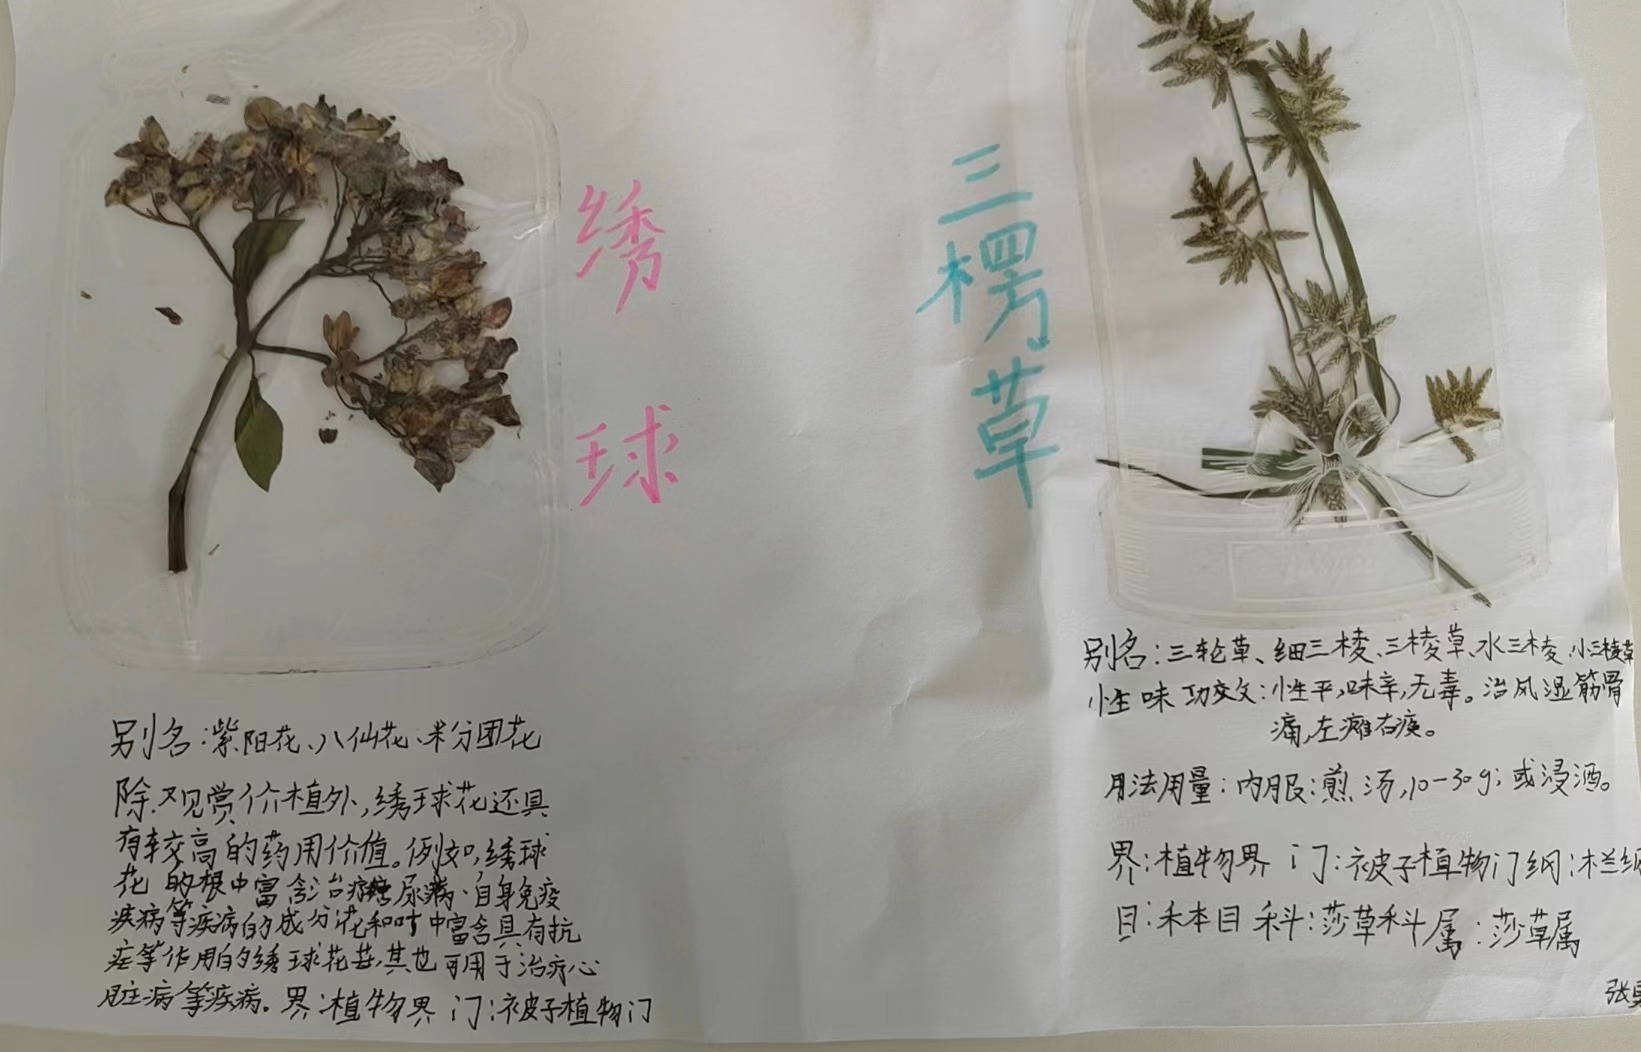 绣
球
三
楞
草
别名:紫阳花、八仙花、粉团花
除观赏价植外,绣球花还具
有较高的药用价值。例如,绣球
花的根中富含治疗糖尿病、自身免疫
疾病等疾病的成分花和叶中富含具有抗
症等作用的绣球花苷,其也可用于治疗心
脏病等疾病。界:植物界 门:被子植物门
别名:三轮草、细三棱、三棱草、水三棱、小三棱草
性味功效:性平,味辛,无毒。治风湿筋骨
痛,左瘫右痪。
用法用量:内服:煎汤,10-30g;或浸酒。
界:植物界 门:被子植物门纲:木兰纲
目:禾本目 科:莎草科属:莎草属
张